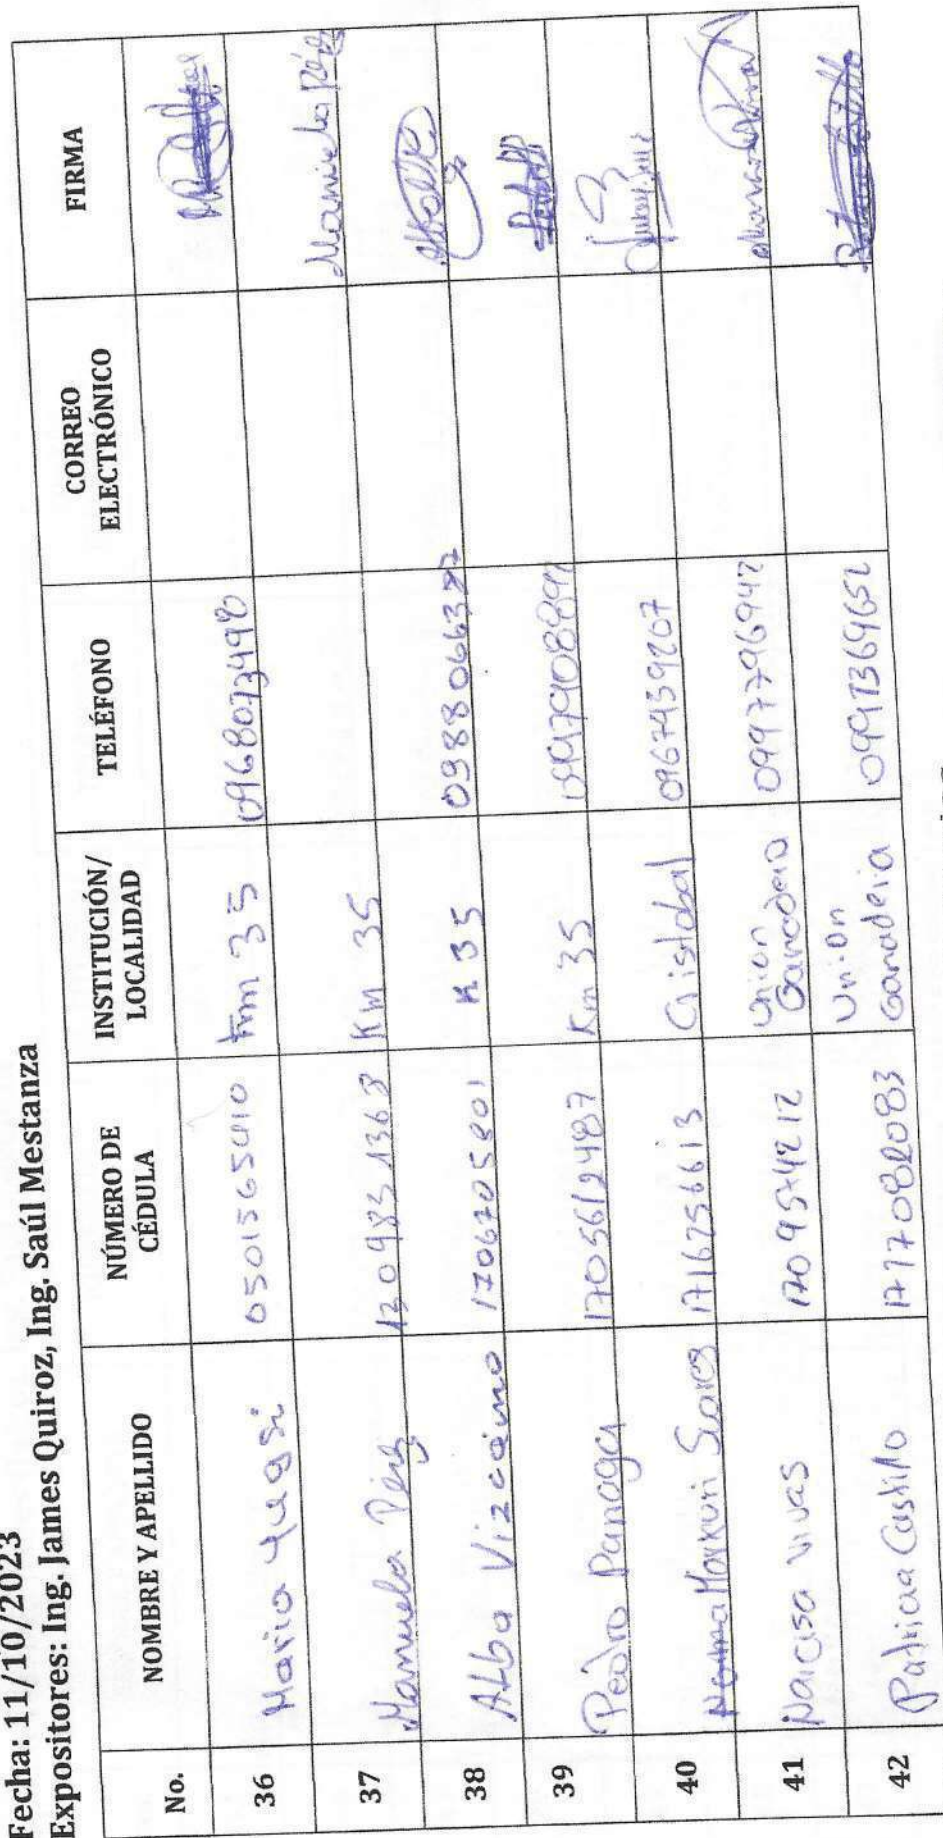 Fecha: 11/10/2023
Expositores: Ing. James Quiroz, Ing. Saúl Mestanza
No. NOMBRE Y APELLIDO NÚMERO DE CÉDULA INSTITUCIÓN/ LOCALIDAD TELÉFONO CORREO ELECTRÓNICO FIRMA
36 Maria Yugsi 0501565410 Km 35 0968073498
37 Manuela Pérez 1309831363 Km 35 Manuela Pérez
38 Alba Vizcaino 1706705801 K 35 0988066397
39 Pedro Panaga 1705612487 Km 35
40 Suarez 1716256613 Cristobal 0967439207
41 Narcisa Vivas 1709574212 Union Ganadera 0997796942
42 Patricia Castillo 1717082083 Union Ganadera 0991369652